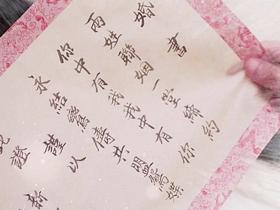 婚書
兩姓聯姻一堂締約
你中有我我中有你
永結鸞儔共盟鴛蝶
謹以
證新